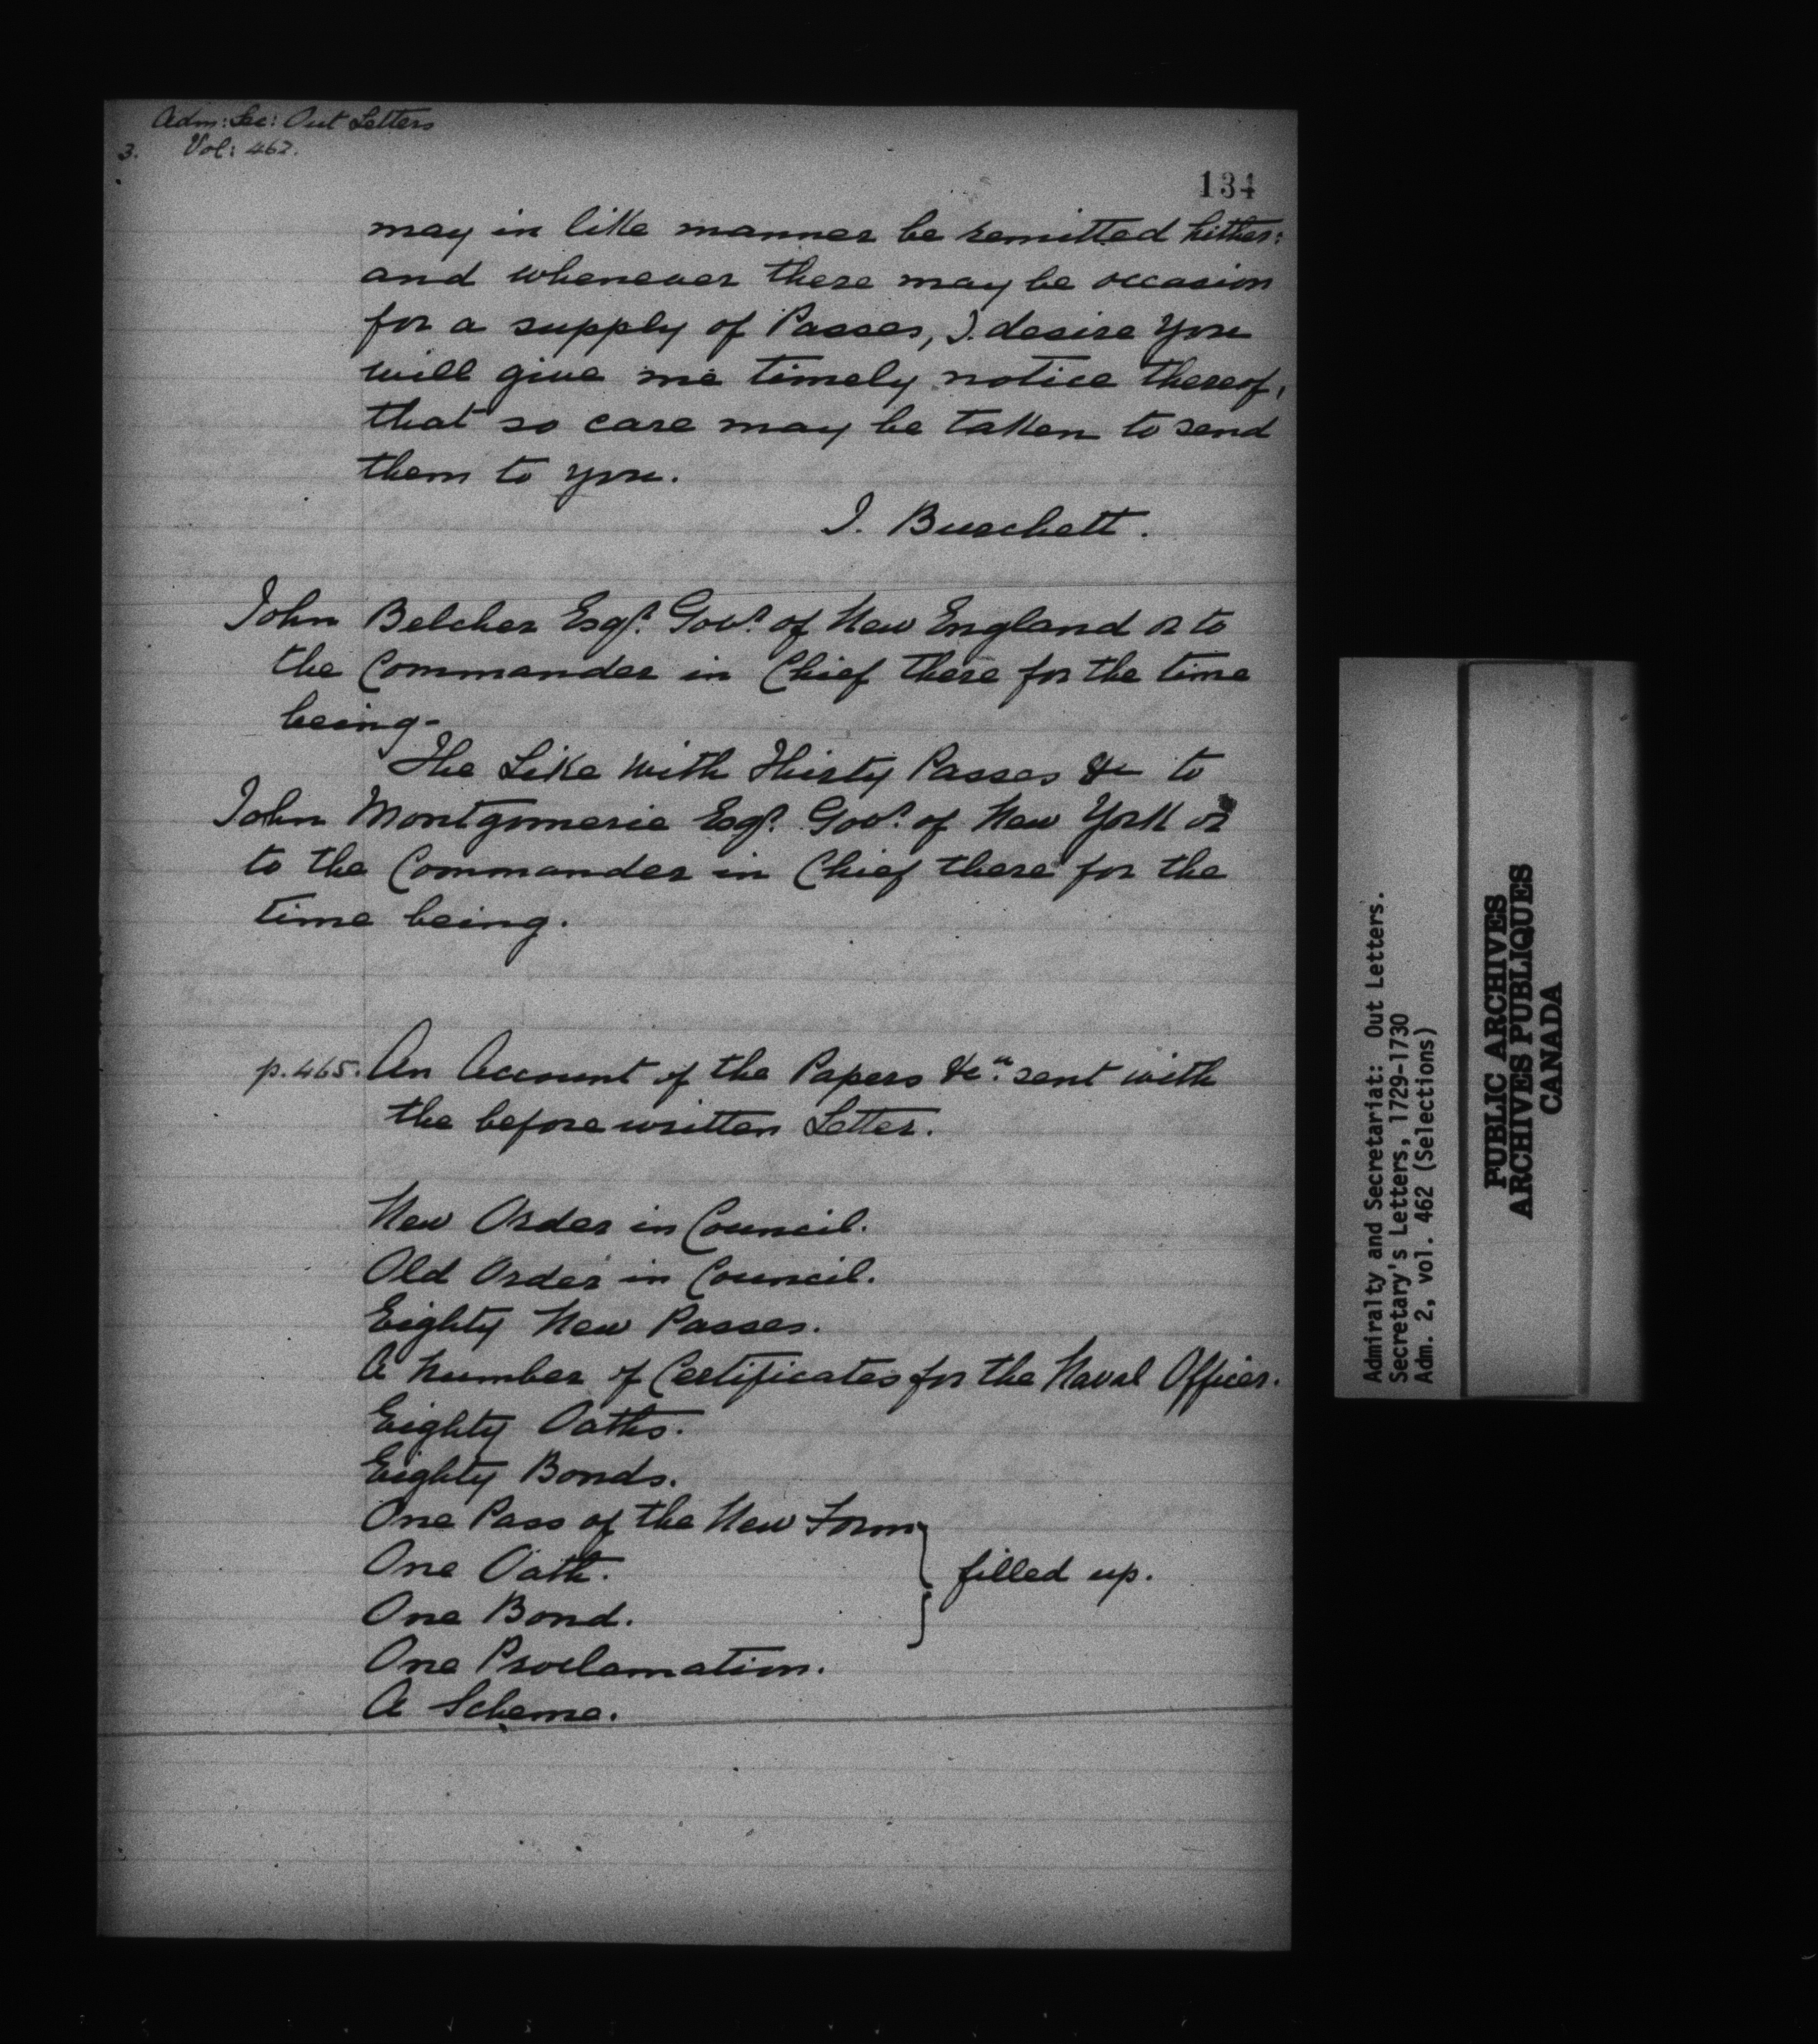 Adm: Sec: Out Letters
3. Vol: 462.
134
may in like manner be remitted hither:
and whenever there may be occasion
for a supply of Passes, I desire You
will give me timely notice thereof,
that so care may be taken to send
them to you.
J. Burchett.
John Belcher Esqr. Govr. of New England or to
the Commander in Chief there for the time
being-
The Like with Thirty Passes &c to
John Montgomerie Esqr. Govr. of New York or
to the Commander in Chief there for the
time being.
p.465. An Account of the Papers &ca. sent with
the before written Letter.
New Order in Council.
Old Order in Council.
Eighty New Passes.
A Number of Certificates for the Naval Officer.
Eighty Oaths.
Eighty Bonds.
One Pass of the New Form
One Oath. } filled up.
One Bond.
One Proclamation.
A Scheme.
Admiralty and Secretariat: Out Letters.
Secretary's Letters, 1729-1730
Adm. 2, vol. 462 (Selections)
PUBLIC ARCHIVES
ARCHIVES PUBLIQUES
CANADA